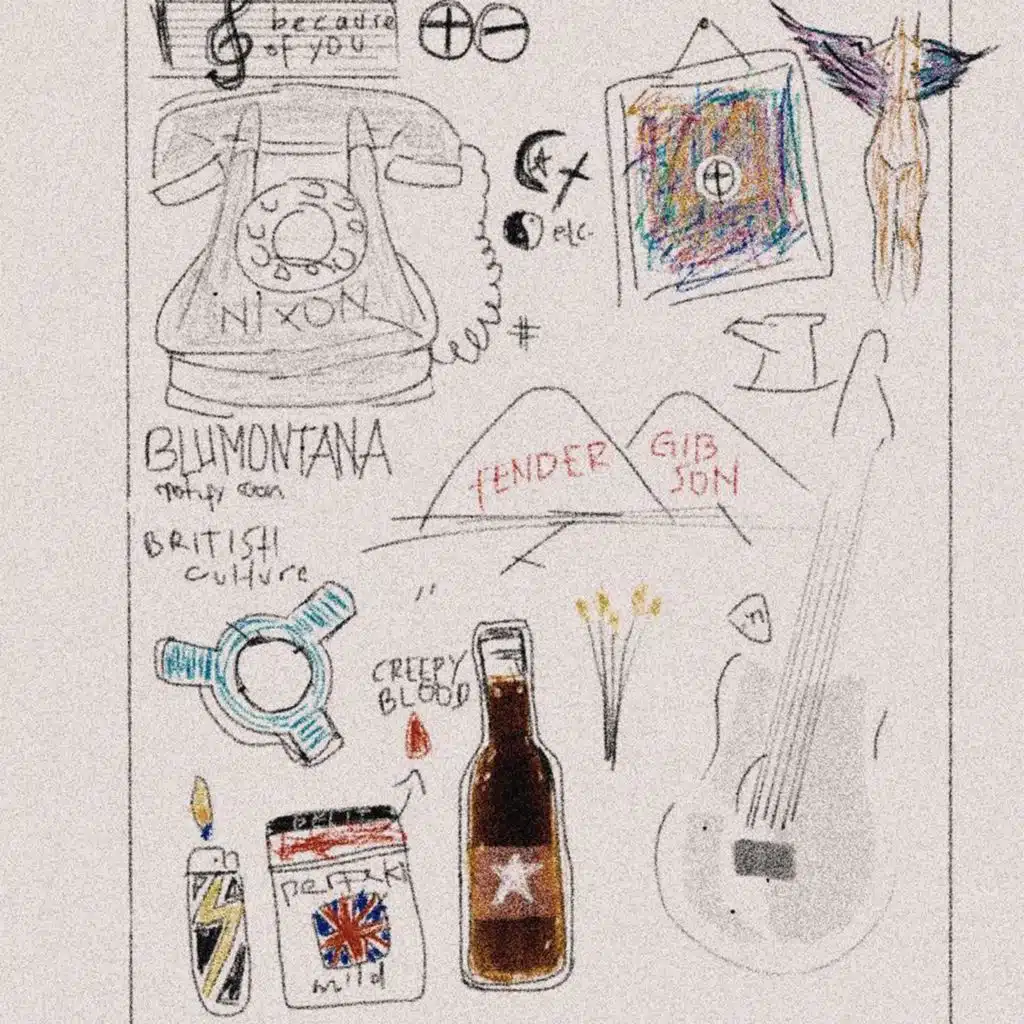 because
of you
NIXON
etc.
#
BLUMONTANA
FENDER
GIB
SON
BRITISH
culture
CREEPY
BLOOD
mild